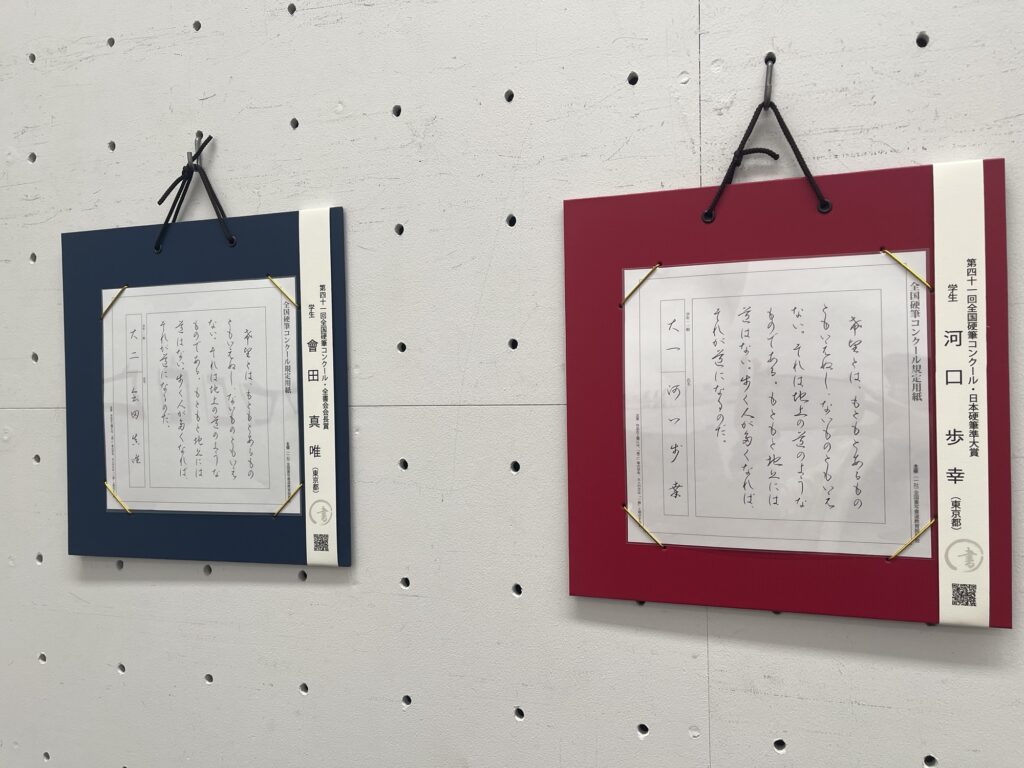 第四十一回全国硬筆コンクール・日本硬筆準大賞
学生 河口 歩幸 (東京都)
書
全国硬筆コンクール規定用紙
希望とは、もともとあるもの
ともいえぬし、ないものともいえ
ない。それは地上の道のような
ものである。もともと地上には
道はない。歩く人が多くなれば、
それが道になるのだ。
大一 河口歩幸
第四十一回全国硬筆コンクール・全書会会長賞
学生 會田 真唯 (東京都)
書
全国硬筆コンクール規定用紙
希望とは、もともとあるもの
ともいえぬし、ないものともいえ
ない。それは地上の道のような
ものである。もともと地上には
道はない。歩く人が多くなれば、
それが道になるのだ。
大二 会田真唯